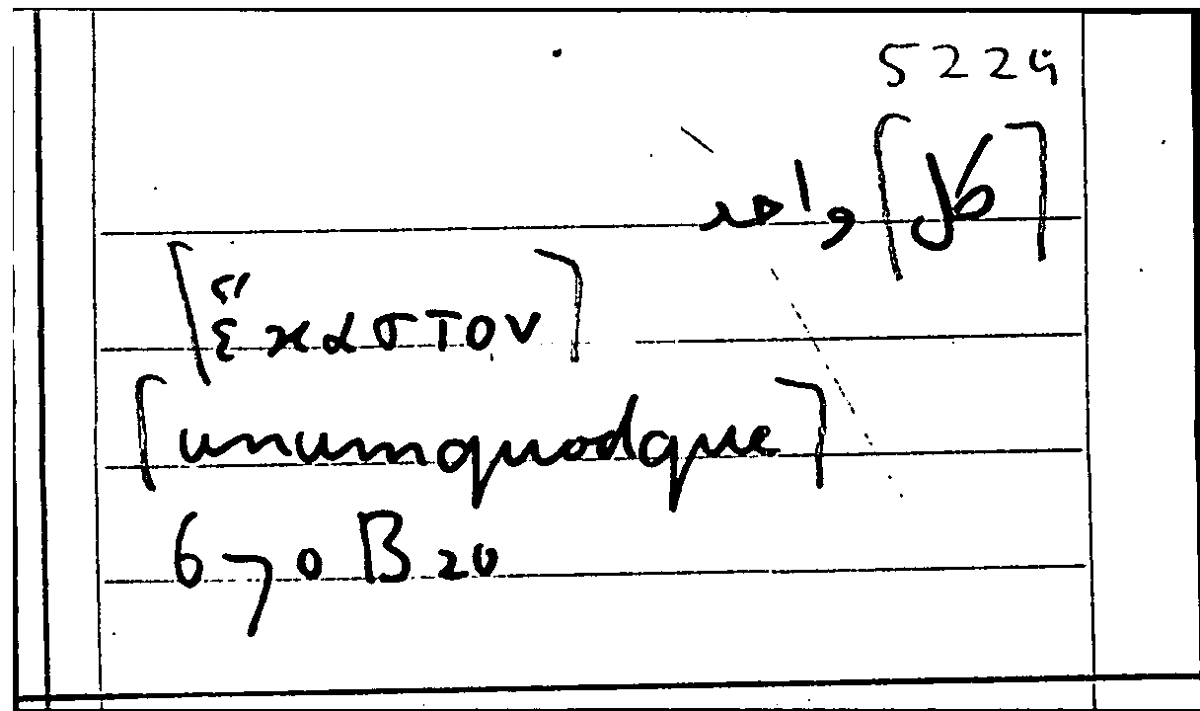 5224
⌈كل⌉ واحد
⌈ἕκαστον⌉
⌈unumquodque⌉
670 B 20